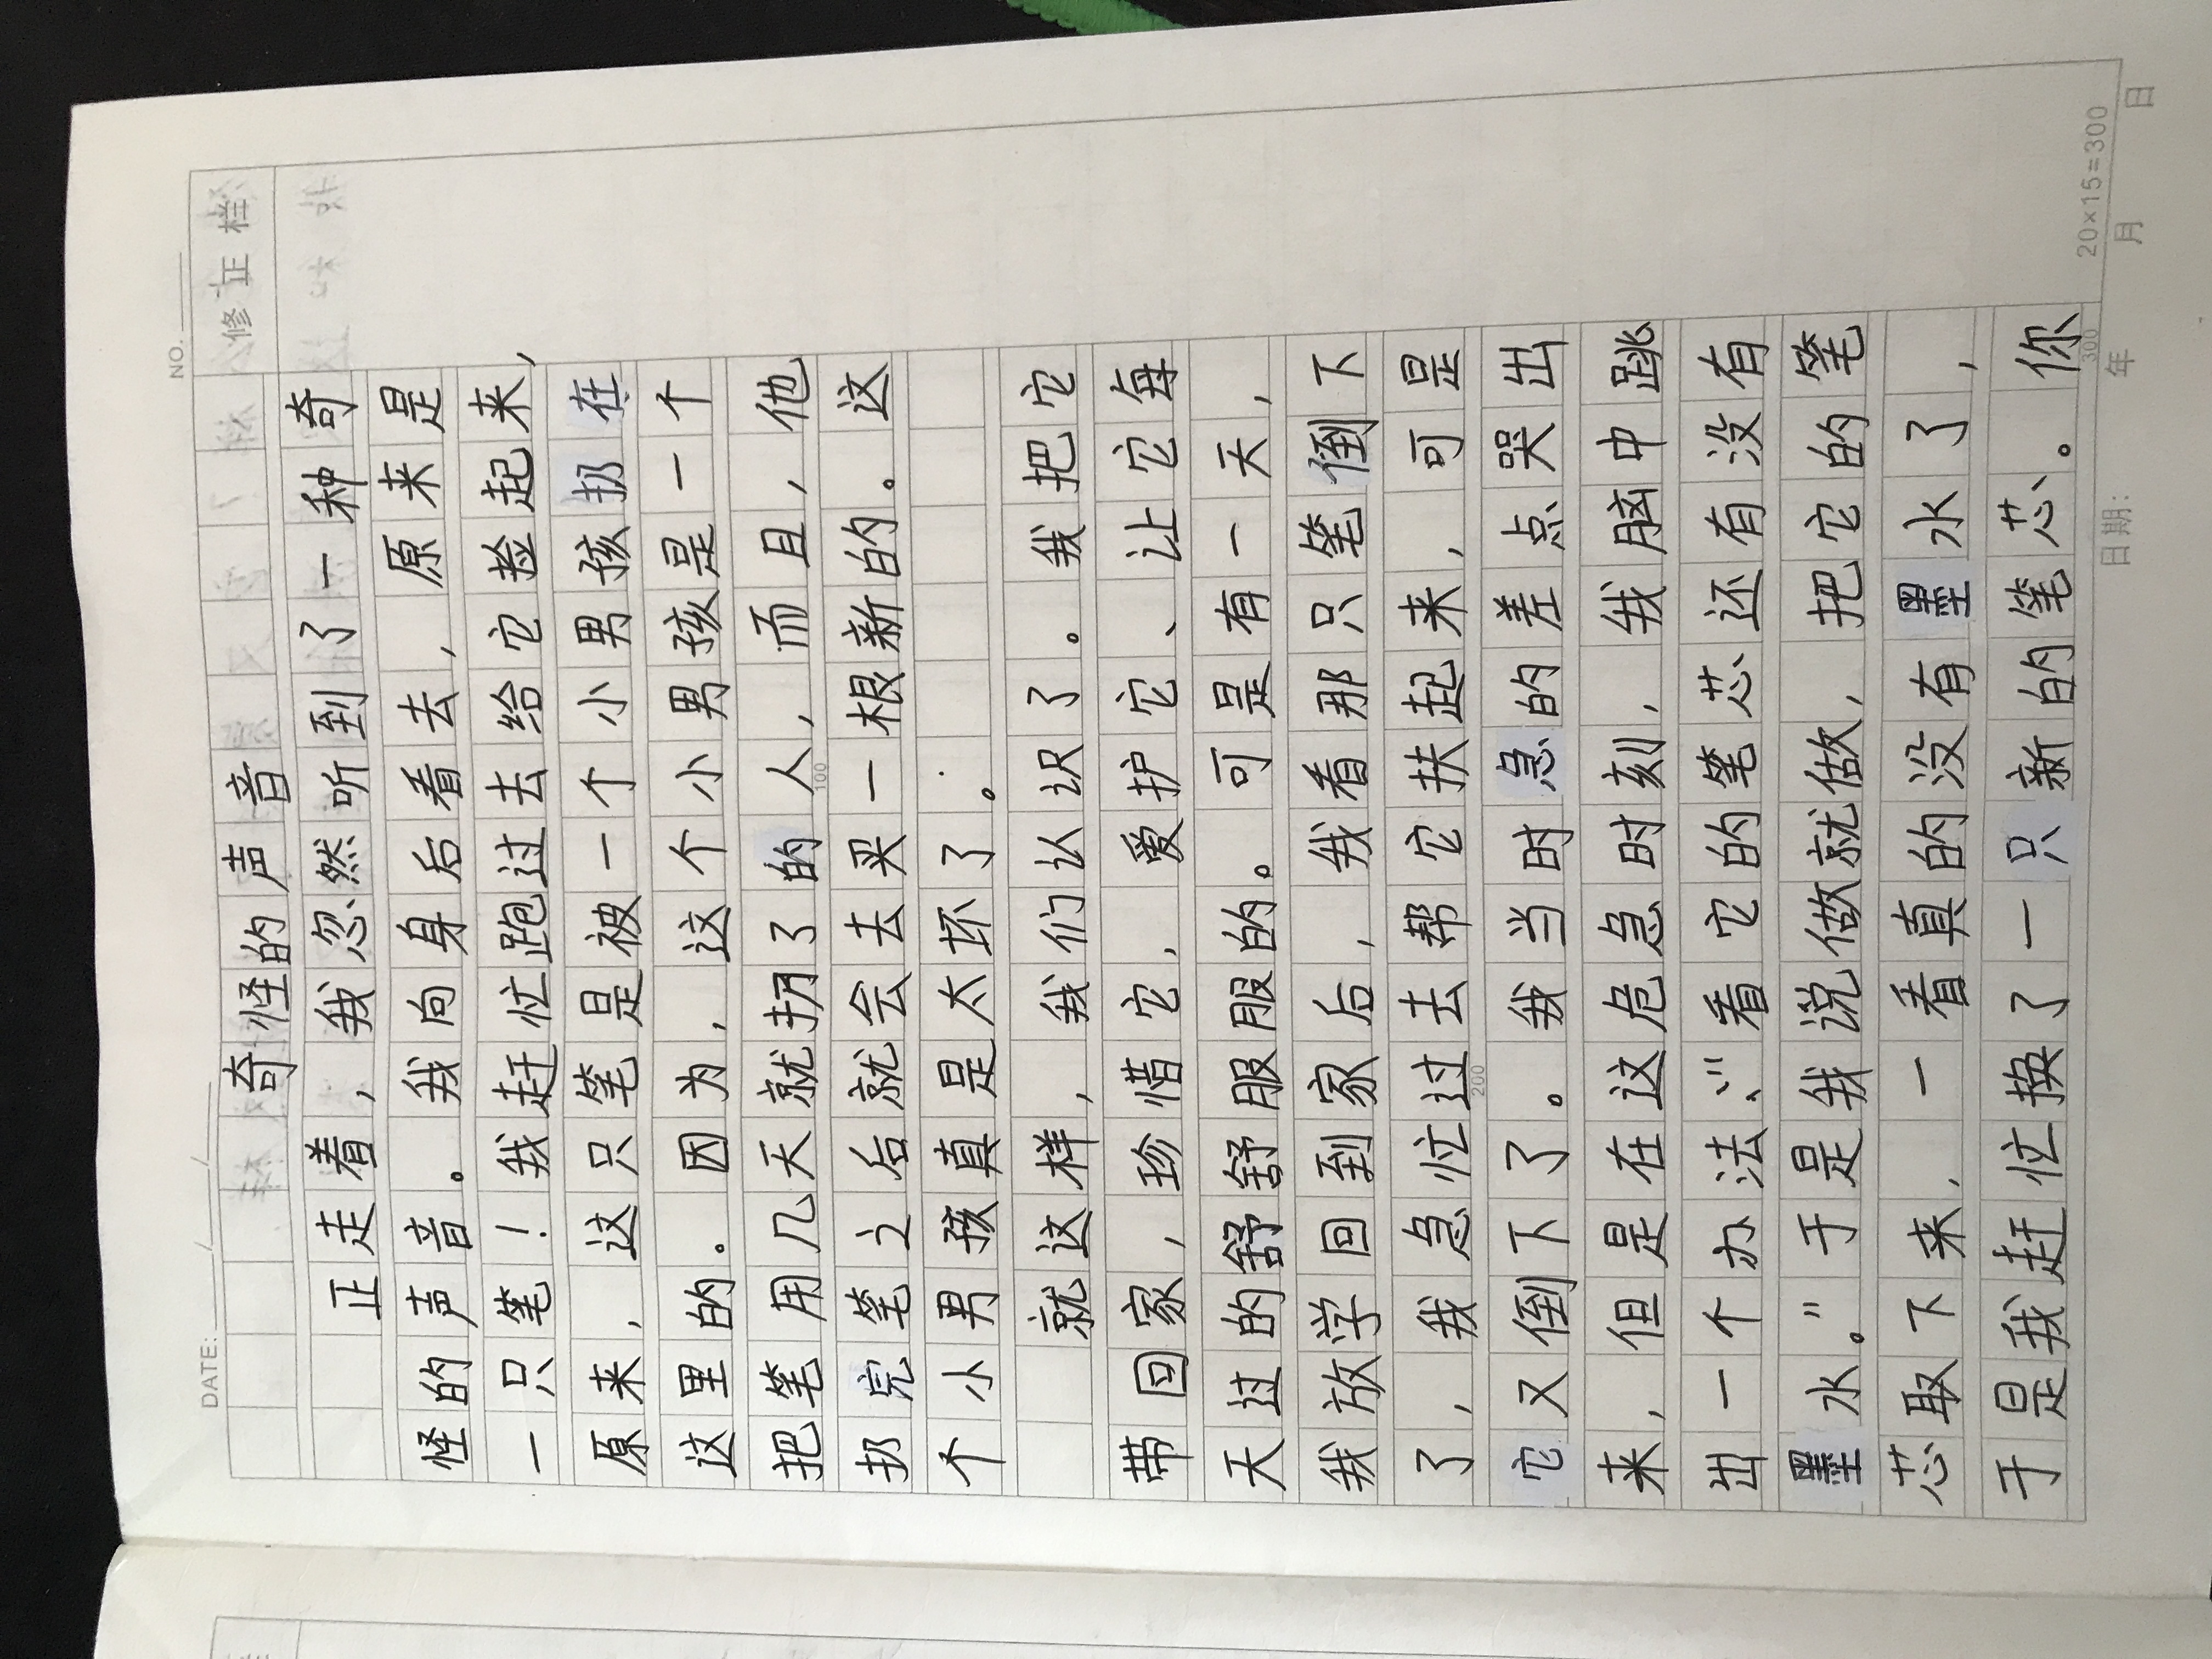 DATE: / /
NO.
修正栏
奇怪的声音
正走着，我忽然听到了一种奇
怪的声音。我向身后看去，原来是
一只笔！我赶忙跑过去给它捡起来，
原来，这只笔是被一个小男孩扔在
这里的。因为，这个小男孩是一个
把笔用几天就扔了的人，而且，他
扔完笔之后就会去买一根新的。这
个小男孩真是太坏了。
就这样，我们认识了。我把它
带回家，珍惜它，爱护它、让它每
天过的舒舒服服的。可是有一天，
我放学回到家后，我看那只笔倒下
了，我急忙过去帮它扶起来，可是
它又倒下了。我当时急的差点哭出
来，但是在这危急时刻，我脑中跳
出一个办法：“看它的笔芯还有没有
墨水。”于是我说做就做，把它的笔
芯取下来，一看真的没有墨水了，
于是我赶忙换了一只新的笔芯。你
100
200
300
20×15=300
日期： 年 月 日